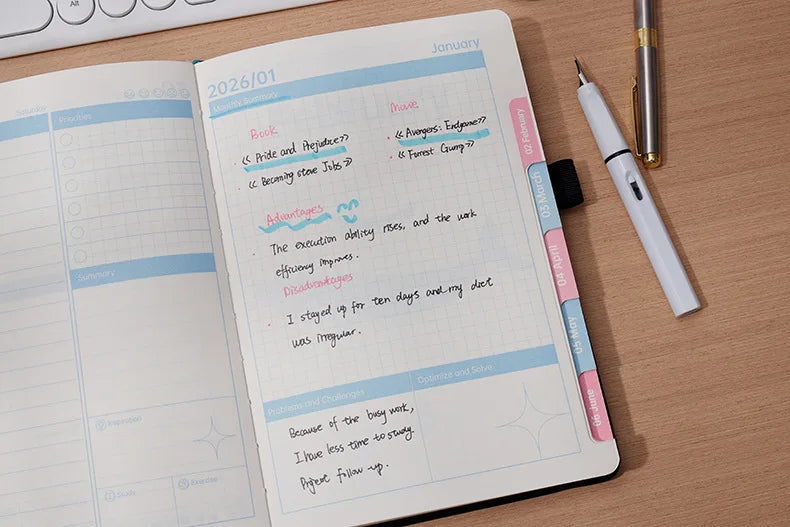 Alt
Saturday
Priorities
Summary
Inspiration
Study
Exercise
2026/01
January
Monthly Summary
Book
Movie
· << Pride and Prejudice>>
· << Avengers: Endgame>>
· << Becoming Steve Jobs >
· << Forrest Gump>>
Advantages
· The execution ability rises, and the work
efficiency improves.
Disadvantages
· I stayed up for ten days and my diet
was irregular.
Problems and Challenges
Optimize and Solve
Because of the busy work,
I have less time to study.
Project follow-up.
02 February
03 March
04 April
05 May
06 June